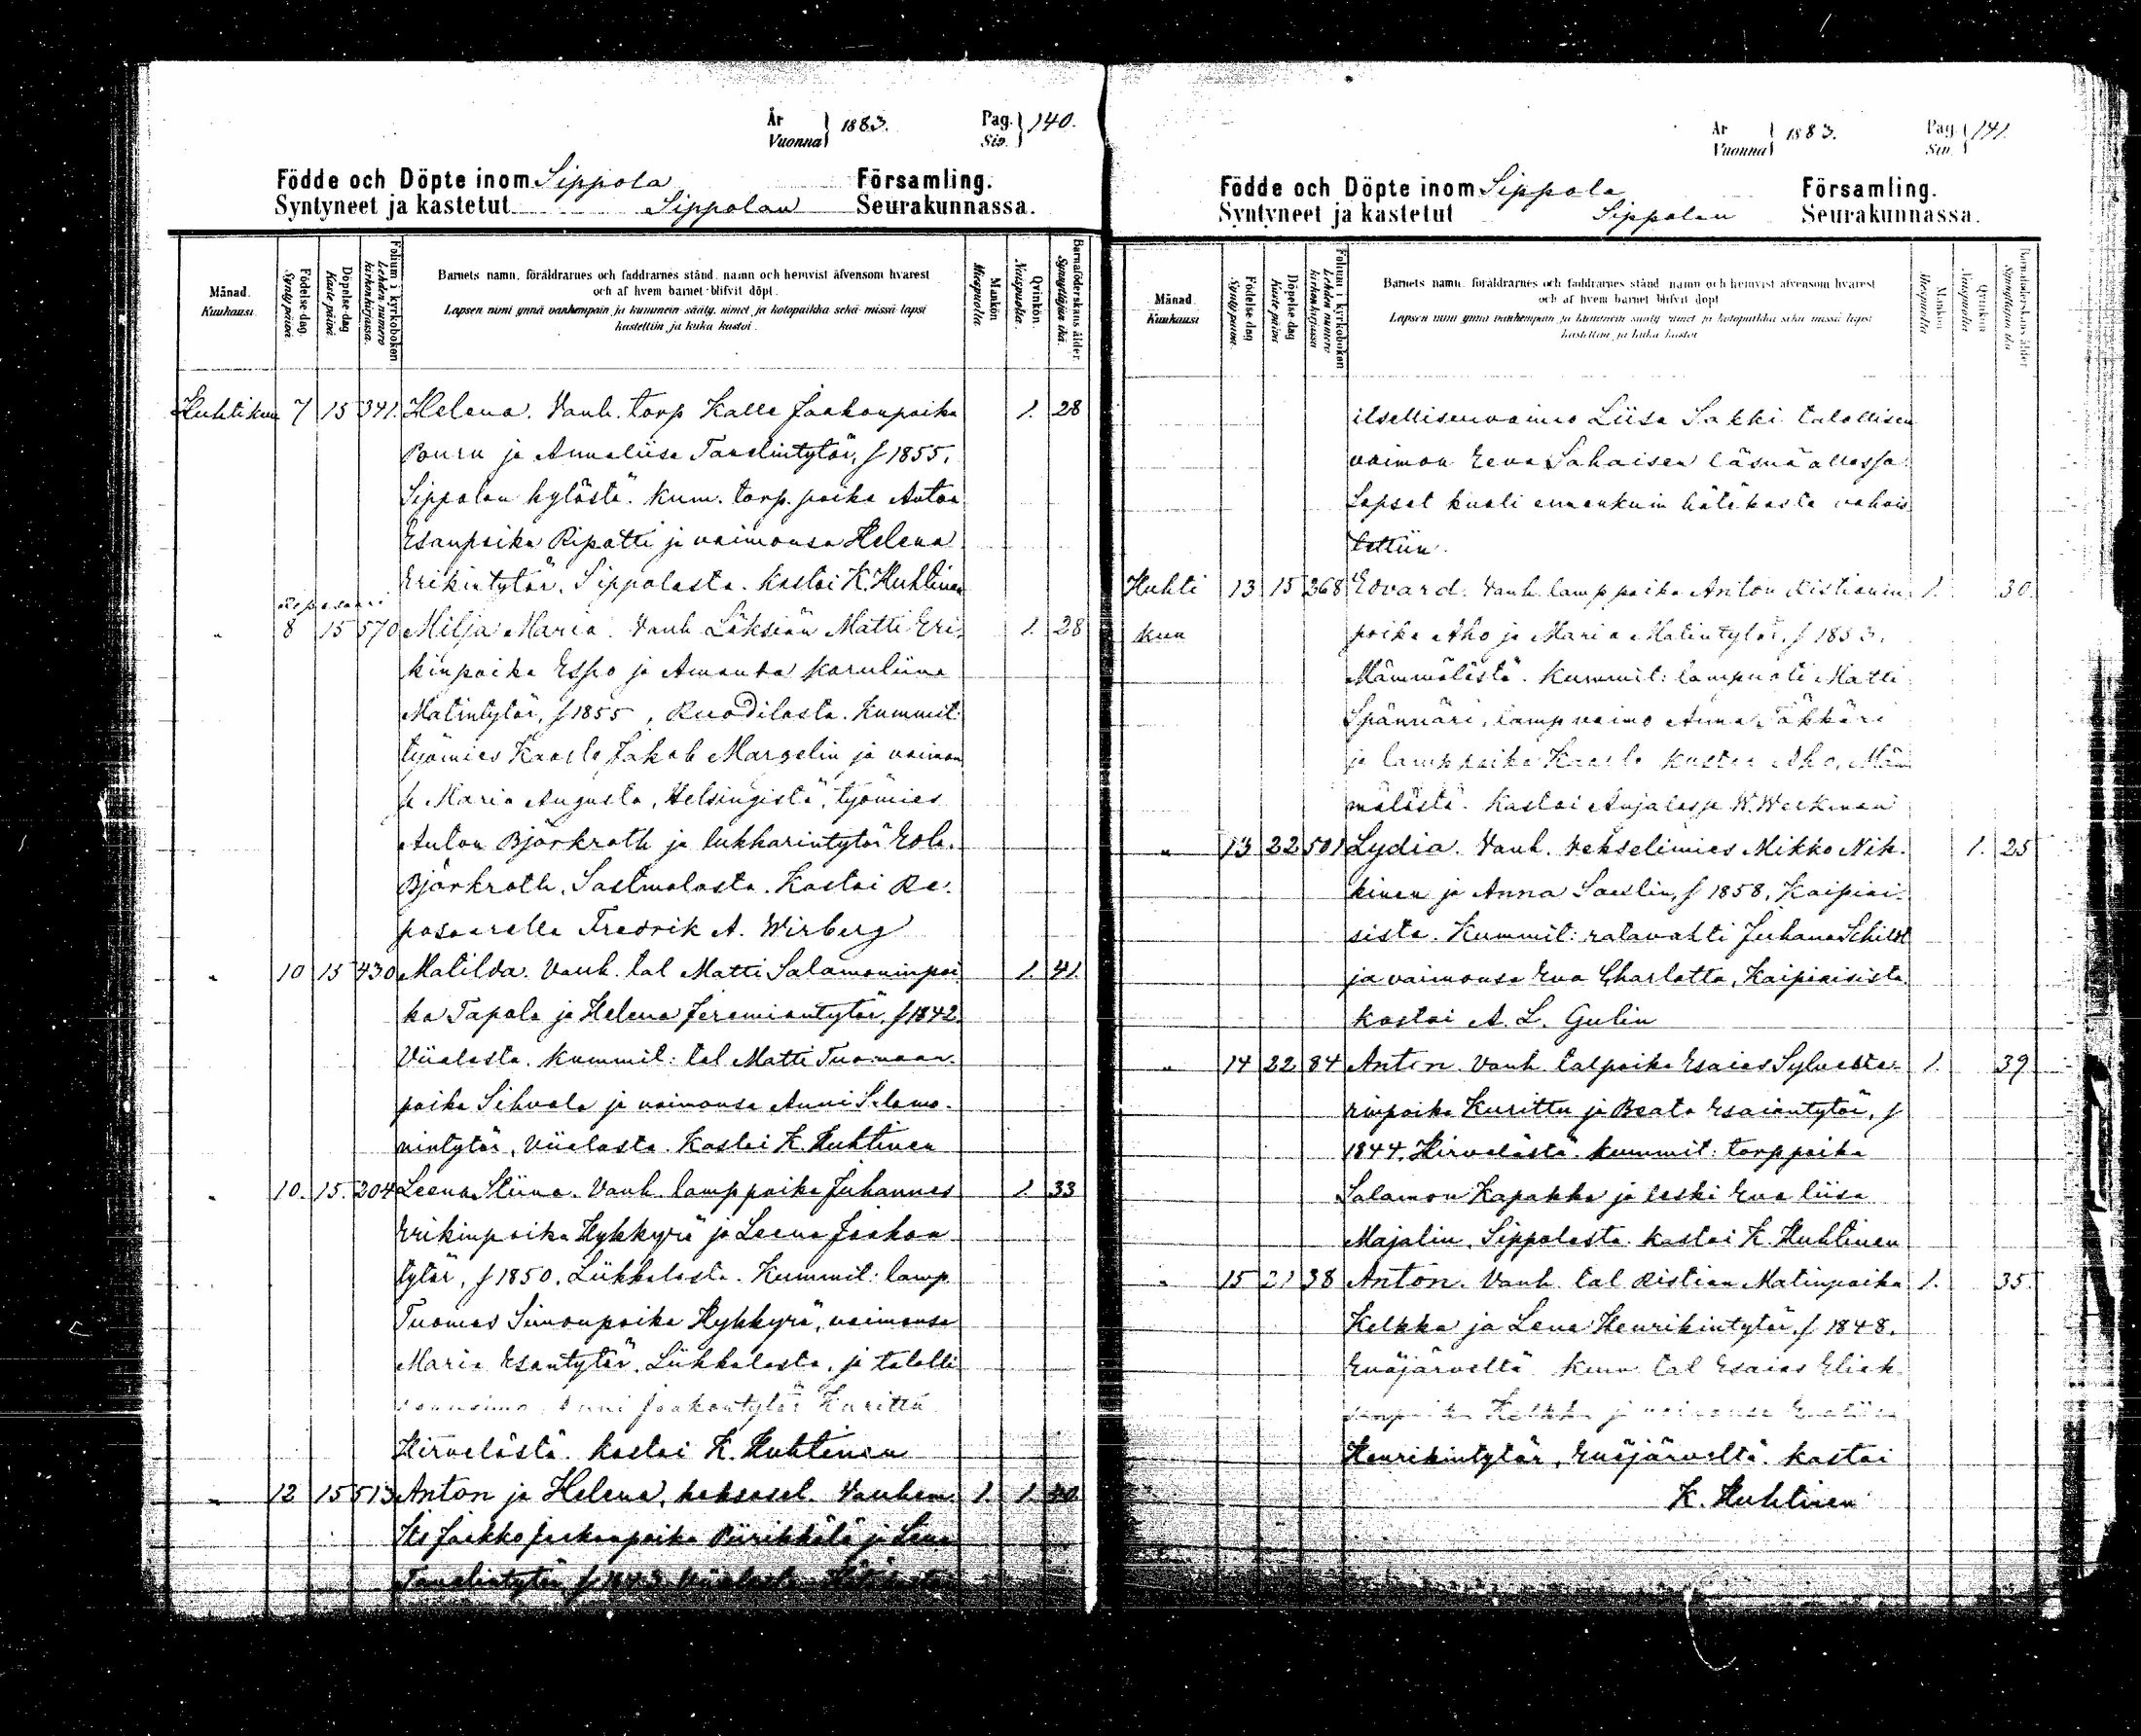 År Vuonna } 1883.
Pag. Siv. } 140.
Födde och Döpte inom Sippola Församling.
Syntyneet ja kastetut Sippolan Seurakunnassa.
Månad. Kuukausi.
Födelse-dag. Synty päivä.
Döpelse-dag Kaste päivä.
Folium i kyrkobokon Lehden numero kirkonkirjassa.
Barnets namn, föräldrarnes och faddrarnes stånd, namn och hemvist äfvensom hvarest
och af hvem barnet blifvit döpt.
Lapsen nimi ynnä vanhempain ja kummein sääty, nimet ja kotopaikka sekä missä lapsi
kastettiin ja kuka kastoi.
Mankön Miespuolta.
Qvinkön. Naispuolta.
Barnaföderskans ålder. Synnyttäjän ikä.
Huhtikuu 7 15 341. Helena. Vanh. torp Kalle Jaakonpoika 1. 28
Pouru ja Annaliisa Taavlintytär, f 1855.
Sippolan kylästä. Kum. torp. poika Anton
Esanpoika Ripatti ja vaimonsa Helena
Erikintytär, Sippolasta. Kastoi K. Huhtinen
Reposaari
" 8 15 570 Milja Maria. Vanh Läksiän Matti Eri- 1. 28
kinpoika Espo ja Amanda Karuliina
Matintytär, f 1855, Ruodilasta. Kummit:
työmies Kaarle Jakob Margelin ja vaimon
sa Maria Augusta, Helsingistä, työmies
Anton Björkroth ja lukkarintytär Eola.
Björkroth, Sastmolasta. Kastoi Re-
posaarella Fredrik A. Wirberg
" 10 15 430 Matilda. Vanh. tal Matti Salamoninpoi 1. 41.
ka Tapola ja Helena Jeremiantytär, f 1842.
Viialasta. Kummit: tal Matti Tuomaan-
poika Sihvola ja vaimonsa Anni Salamo-
nintytär, Viialasta. Kastoi K. Huhtinen
" 10. 15. 204 Leena Stiina. Vanh. lamppoika Juhannes 1. 33
Erikinpoika Hykkyrä ja Leena Jaakon
tytär, f 1850. Liikkalasta. Kummit: lamp.
Tuomas Simonpoika Hykkyrä, vaimonsa
Maria Esantytär, Liikkalasta, ja talolli
senvaimo Anni Jaakontytär Kurittu
Hirvelästä. Kastoi K. Huhtinen
" 12 15 513 Anton ja Helena, kaksosel. Vanhem. 1. 1. 40
Its Jaakko Jaakonpoika Piirikkälä ja Lena
Taavlintytär, f 1843 Viialasta
År Vuonna } 1883.
Pag. Siv. } 141.
Födde och Döpte inom Sippola Församling.
Syntyneet ja kastetut Sippolan Seurakunnassa.
Månad. Kuukausi
Födelse-dag Synty päivä.
Döpelse-dag Kaste päivä
Folium i kyrkobokon Lehden numero kirkonkirjassa
Barnets namn, föräldrarnes och faddrarnes stånd, namn och hemvist äfvensom hvarest
och af hvem barnet blifvit döpt
Lapsen nimi ynnä vanhempain ja kummein sääty, nimet ja kotopaikka sekä missä lapsi
kastettiin ja kuka kastoi
Mankön Miespuolta
Qvinkön Naispuolta
Barnaföderskans ålder Synnyttäjän ikä
itsellisenvaimo Liisa Sakki talollisen
vaimon Eeva Sahaisen läsnä ollessa.
Lapset kuoli ennenkuin hätäkaste vahvis
tettiin.
Huhti 13 15 368 Edvard. Vanh. lamppoika Anton Kistianin 1. 30.
kuu poika Aho ja Maria Matintytär, f 1853.
Mämmälästä. Kummit: lampuoti Matti
Spännäri, lamp vaimo Anna Täkkäri
ja lamppoika Kaarle Kustaa Aho, Mäm
mälästä. Kastoi Anjalassa W. Weckman
" 13 22 501 Lydia. Vanh. Vekselimies Mikko Nik- 1. 25
kinen ja Anna Saeslin, f 1858, Kaipiai-
sista. Kummit: ratavahti Juhana Schildt
ja vaimonsa Eva Charlotta, Kaipiaisista.
kastoi A. L. Gulin
" 14 22 84 Anton. Vanh. talpoika Esaias Sylveste- 1. 39
rinpoika Kurittu ja Beata Esaiantytär, f
1844. Hirvelästä. Kummit: torppoika
Salamon Kapakka ja leski Eva liisa
Majalin, Sippolasta. Kastoi K. Huhtinen
" 15 21 38 Anton. Vanh. tal Kistian Matinpoika 1. 35.
Kelkka ja Lena Henrikintytär, f 1848.
Enäjärveltä Kum tal Esaias Eliak
sanpoika Kelkka ja vaimonsa Evaliisa
Henrikintytär, Enäjärveltä. Kastoi
K. Huhtinen